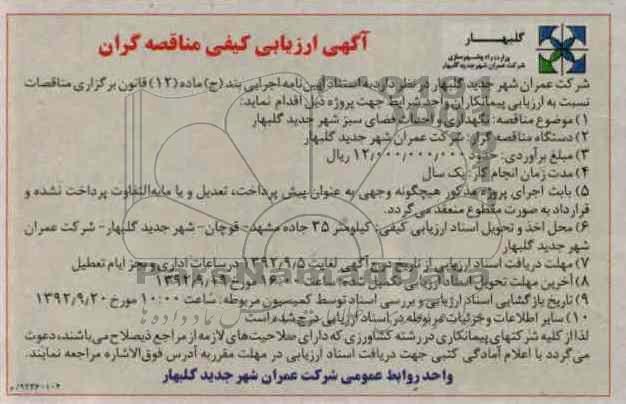 گلبهار
وزارت راه و شهرسازی
شرکت عمران شهر جدید گلبهار
آگهی ارزیابی کیفی مناقصه گران
شرکت عمران شهر جدید گلبهار در نظر دارد به استناد آیین نامه اجرایی بند (ج) ماده (۱۲) قانون برگزاری مناقصات
نسبت به ارزیابی پیمانکاران واجد شرایط جهت پروژه ذیل اقدام نماید:
۱) موضوع مناقصه: نگهداری و احداث فضای سبز شهر جدید گلبهار
۲) دستگاه مناقصه گزار: شرکت عمران شهر جدید گلبهار
۳) مبلغ برآوردی: حدود ۱۲,۰۰۰,۰۰۰,۰۰۰ ریال
۴) مدت زمان انجام کار: یک سال
۵) بابت اجرای پروژه مذکور هیچگونه وجهی به عنوان پیش پرداخت، تعدیل و یا مابه‌التفاوت پرداخت نشده و
قرارداد به صورت مقطوع منعقد می گردد.
۶) محل اخذ و تحویل اسناد ارزیابی کیفی: کیلومتر ۳۵ جاده مشهد- قوچان- شهر جدید گلبهار- شرکت عمران
شهر جدید گلبهار
۷) مهلت دریافت اسناد ارزیابی از تاریخ درج آگهی لغایت ۱۳۹۲/۹/۵ در ساعات اداری و بجز ایام تعطیل
۸) آخرین مهلت تحویل اسناد ارزیابی تکمیل شده ساعت ۱۶:۰۰ مورخ ۱۳۹۲/۹/۱۹
۹) تاریخ بازگشایی اسناد ارزیابی و بررسی اسناد توسط کمیسیون مربوطه: ساعت ۱۰:۰۰ مورخ ۱۳۹۲/۹/۲۰
۱۰) سایر اطلاعات و جزئیات مربوطه در اسناد ارزیابی درج شده است
لذا از کلیه شرکتهای پیمانکاری در رشته کشاورزی که دارای صلاحیت‌های لازمه از مراجع ذیصلاح می‌باشند، دعوت
می گردد با اعلام آمادگی کتبی جهت دریافت اسناد ارزیابی در مهلت مقرر به آدرس فوق‌الاشاره مراجعه نمایند.
واحد روابط عمومی شرکت عمران شهر جدید گلبهار